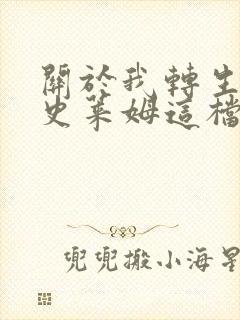 關於我轉生
史萊姆這檔
兜兜搬小海星